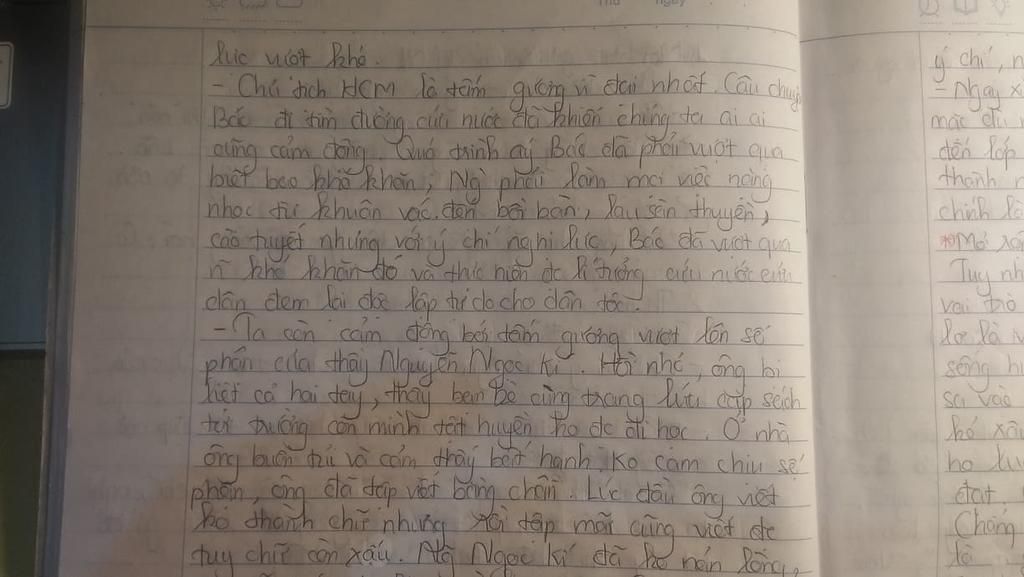 lực vượt khó.
- Chủ tịch HCM là tấm gương vĩ đại nhất. Câu chuyện
Bác đi tìm đường cứu nước đã khiến chúng ta ai ai
cũng cảm động. Quá trình ấy Bác đã phải vượt qua
biết bao khó khăn, Ng phải làm mọi việc nặng
nhọc từ khuân vác đến bồi bàn, lau sàn thuyền,
cào tuyết nhưng với ý chí nghị lực, Bác đã vượt qua
n~ khó khăn đó và thực hiện đc lí tưởng cứu nước cứu
dân đem lại độc lập tự do cho dân tộc.
- Ta còn cảm động bởi tấm gương vượt lên số
phận của thầy Nguyễn Ngọc Kí. Hồi nhỏ, ông bị
liệt cả hai tay, thấy bạn bè cùng trang lứu cắp sách
tới trường còn mình tật huyền ko đc đi học. Ở nhà
ông buồn tủi và cảm thấy bất hạnh. Ko cam chịu số
phận, ông đã tập viết bằng chân. Lúc đầu ông viết
ko thành chữ nhưng rồi tập mãi cũng viết đc
tuy chữ còn xấu. Ngọc Kí đã ko nản lòng,
ý chí, n
- Ngay
mặc dù
đến lớp
thanh
chính là
*Mở
Tuy nh
vai trò
sống
sa vào
kẻ xấu
họ
đạt
Chúng
lộ